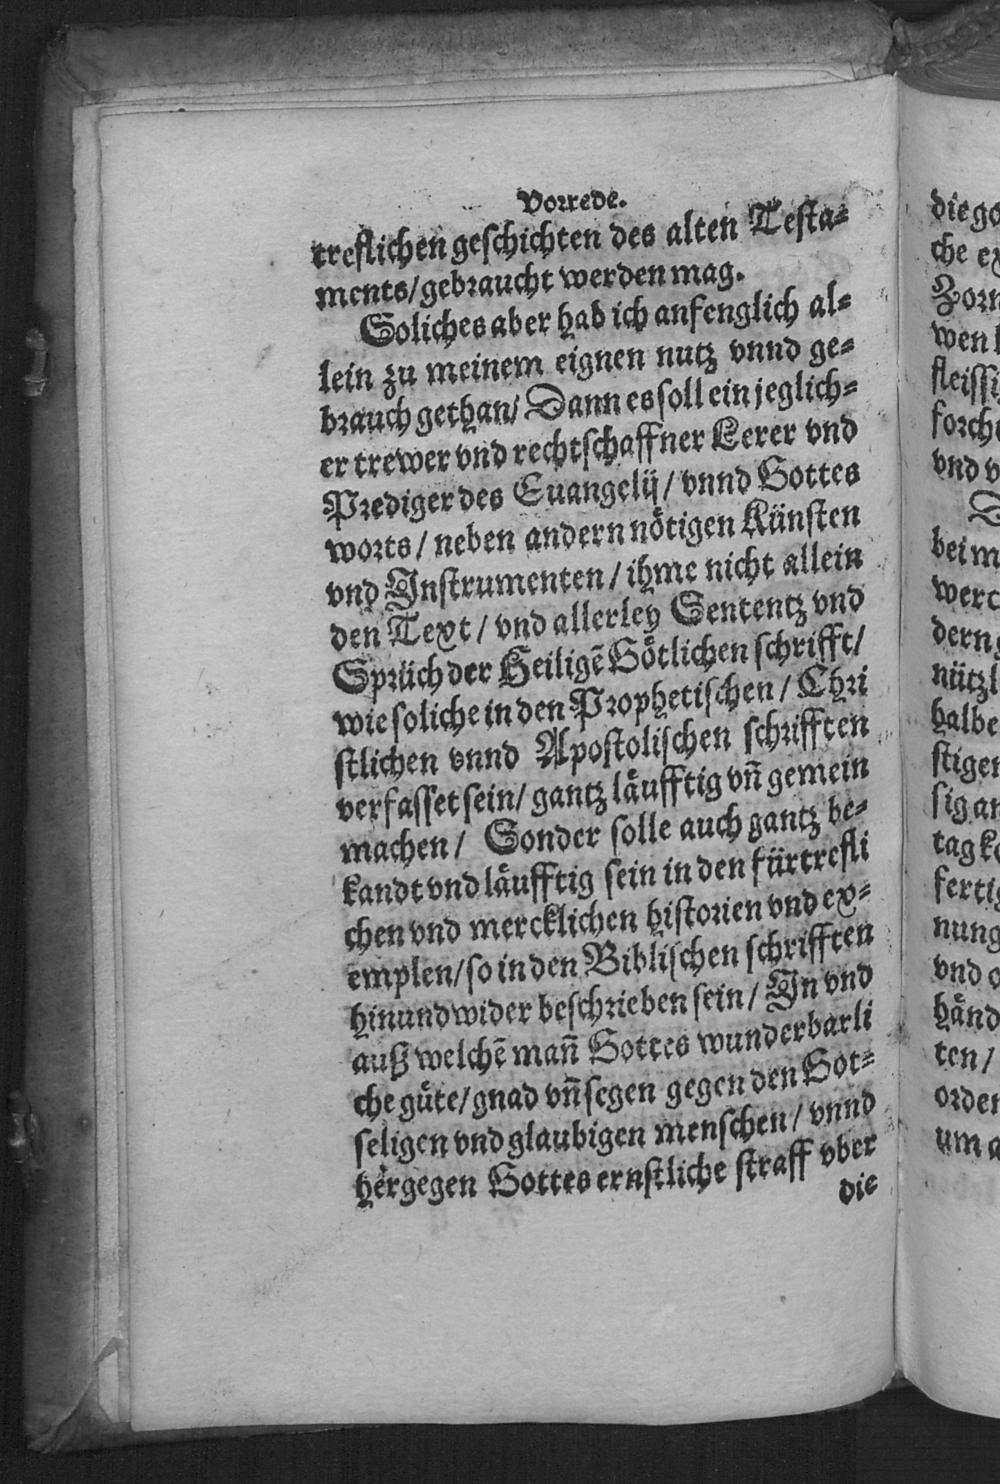 Vorrede.
treflichen geschichten des alten Testa-
ments/ gebraucht werden mag.
Soliches aber hab ich anfenglich al-
lein zu meinem eignen nutz vnnd ge-
brauch gethan/ Dann es soll ein jeglich-
er trewer vnd rechtschaffner Lerer vnd
Prediger des Euangelij/ vnnd Gottes
worts/ neben andern nötigen Künsten
vnd Instrumenten/ ihme nicht allein
den Text/ vnd allerley Sententz vnd
Sprüch der Heiligē Götlichen schrifft/
wie soliche in den Prophetischen/ Chri
stlichen vnnd Apostolischen schrifften
verfasset sein/ gantz läufftig vñ gemein
machen/ Sonder solle auch gantz be-
kandt vnd läufftig sein in den fürtrefli
chen vnd mercklichen historien vnd ex-
emplen/ so in den Biblischen schrifften
hin und wider beschrieben sein/ In vnd
auß welchē mañ Gottes wunderbarli
che güte/ gnad vñ segen gegen den Got-
seligen vnd glaubigen menschen/ vnnd
hergegen Gottes ernstliche straff vber
die
die go
che ex
Zorn
wen
fleissi
forch
vnd v
D
bei m
werc
dern
nützl
halbe
stigen
sig an
tag
fertig
nung
vnd
händ
ten/
orden
um a